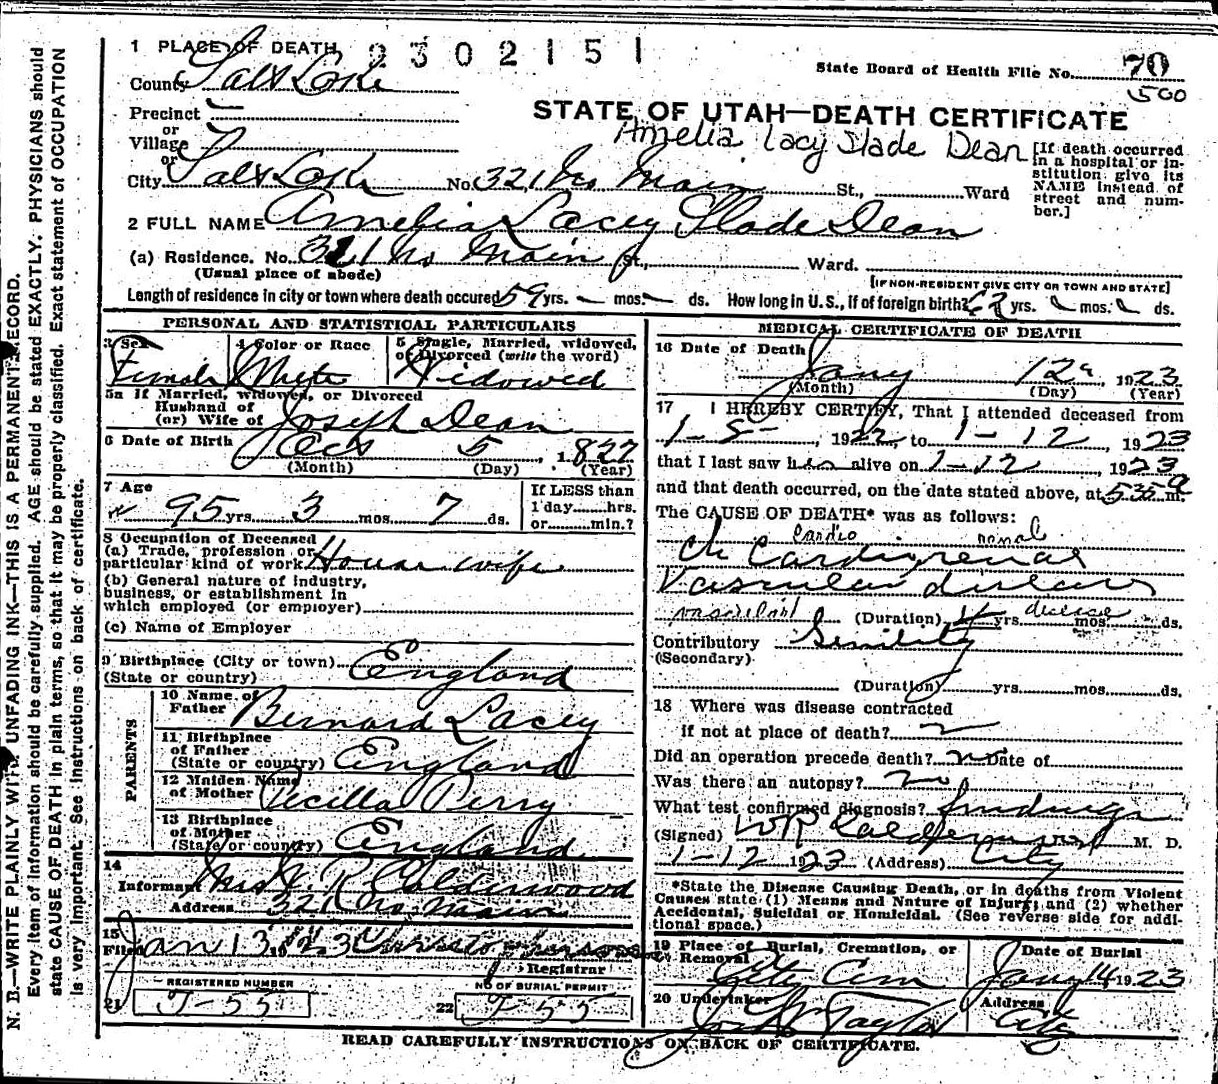 1 PLACE OF DEATH 2302151
County Salt Lake
State Board of Health File No. 70
500
Precinct
or
Village
or
STATE OF UTAH—DEATH CERTIFICATE
Amelia Lacy Slade Dean
City Salt Lake No. 321 No Main St., Ward
[If death occurred in a hospital or institution give its NAME instead of street and number.]
2 FULL NAME Amelia Lacey Slade Dean
(a) Residence. No. 321 No Main St., Ward.
(Usual place of abode)
[IF NON-RESIDENT GIVE CITY OR TOWN AND STATE]
Length of residence in city or town where death occured 59 yrs. — mos. — ds. How long in U.S., if of foreign birth? yrs. mos. ds.
PERSONAL AND STATISTICAL PARTICULARS
3 Sex 4 Color or Race 5 Single, Married, widowed, or Divorced (write the word)
Female White Widowed
5a If Married, widowed, or Divorced
Husband of
(or) Wife of Joseph Dean
6 Date of Birth Oct 5, 1827
(Month) (Day) (Year)
7 Age 95 yrs. 3 mos. 7 ds.
If LESS than
1 day hrs.
or min.?
8 Occupation of Deceased
(a) Trade, profession or
particular kind of work House wife
(b) General nature of industry,
business, or establishment in
which employed (or employer)
(c) Name of Employer
9 Birthplace (City or town)
(State or country) England
PARENTS
10 Name of
Father Bernard Lacey
11 Birthplace
of Father
(State or country) England
12 Maiden Name
of Mother Perry
13 Birthplace
of Mother
(State or country) England
14
Informant Mrs W. R. Calderwood
Address 321 No. Main
15
Filed Jan 13 1923
Registrar
REGISTERED NUMBER NO OF BURIAL PERMIT
21 J-55 22 J-55
MEDICAL CERTIFICATE OF DEATH
16 Date of Death Jany 12, 1923
(Month) (Day) (Year)
17 I HEREBY CERTIFY, That I attended deceased from
1-5-, 1922, to 1-12 1923
that I last saw her alive on 1-12 1923
and that death occurred, on the date stated above, at 535 a m.
The CAUSE OF DEATH* was as follows:
cardio renal
Ch Cardiorenal
Vascular disease
disease
(Duration) 4 yrs. mos. ds.
Contributory Senility
(Secondary)
(Duration) yrs. mos. ds.
18 Where was disease contracted
if not at place of death?
Did an operation precede death? no Date of
Was there an autopsy? no
What test confirmed diagnosis? findings
(Signed) W R Calderwood M. D.
1-12 1923 (Address) City
*State the Disease Causing Death, or in deaths from Violent
Causes state (1) Means and Nature of Injury; and (2) whether
Accidental, Suicidal or Homicidal. (See reverse side for addi-
tional space.)
19 Place of Burial, Cremation, or Removal Date of Burial
City Cem Jany 14 1923
20 Undertaker Address
Taylor City
READ CAREFULLY INSTRUCTIONS ON BACK OF CERTIFICATE.
N. B.—WRITE PLAINLY WITH UNFADING INK—THIS IS A PERMANENT RECORD.
Every item of information should be carefully supplied. AGE should be stated EXACTLY. PHYSICIANS should
state CAUSE OF DEATH in plain terms, so that it may be properly classified. Exact statement of OCCUPATION
is very important. See instructions on back of certificate.